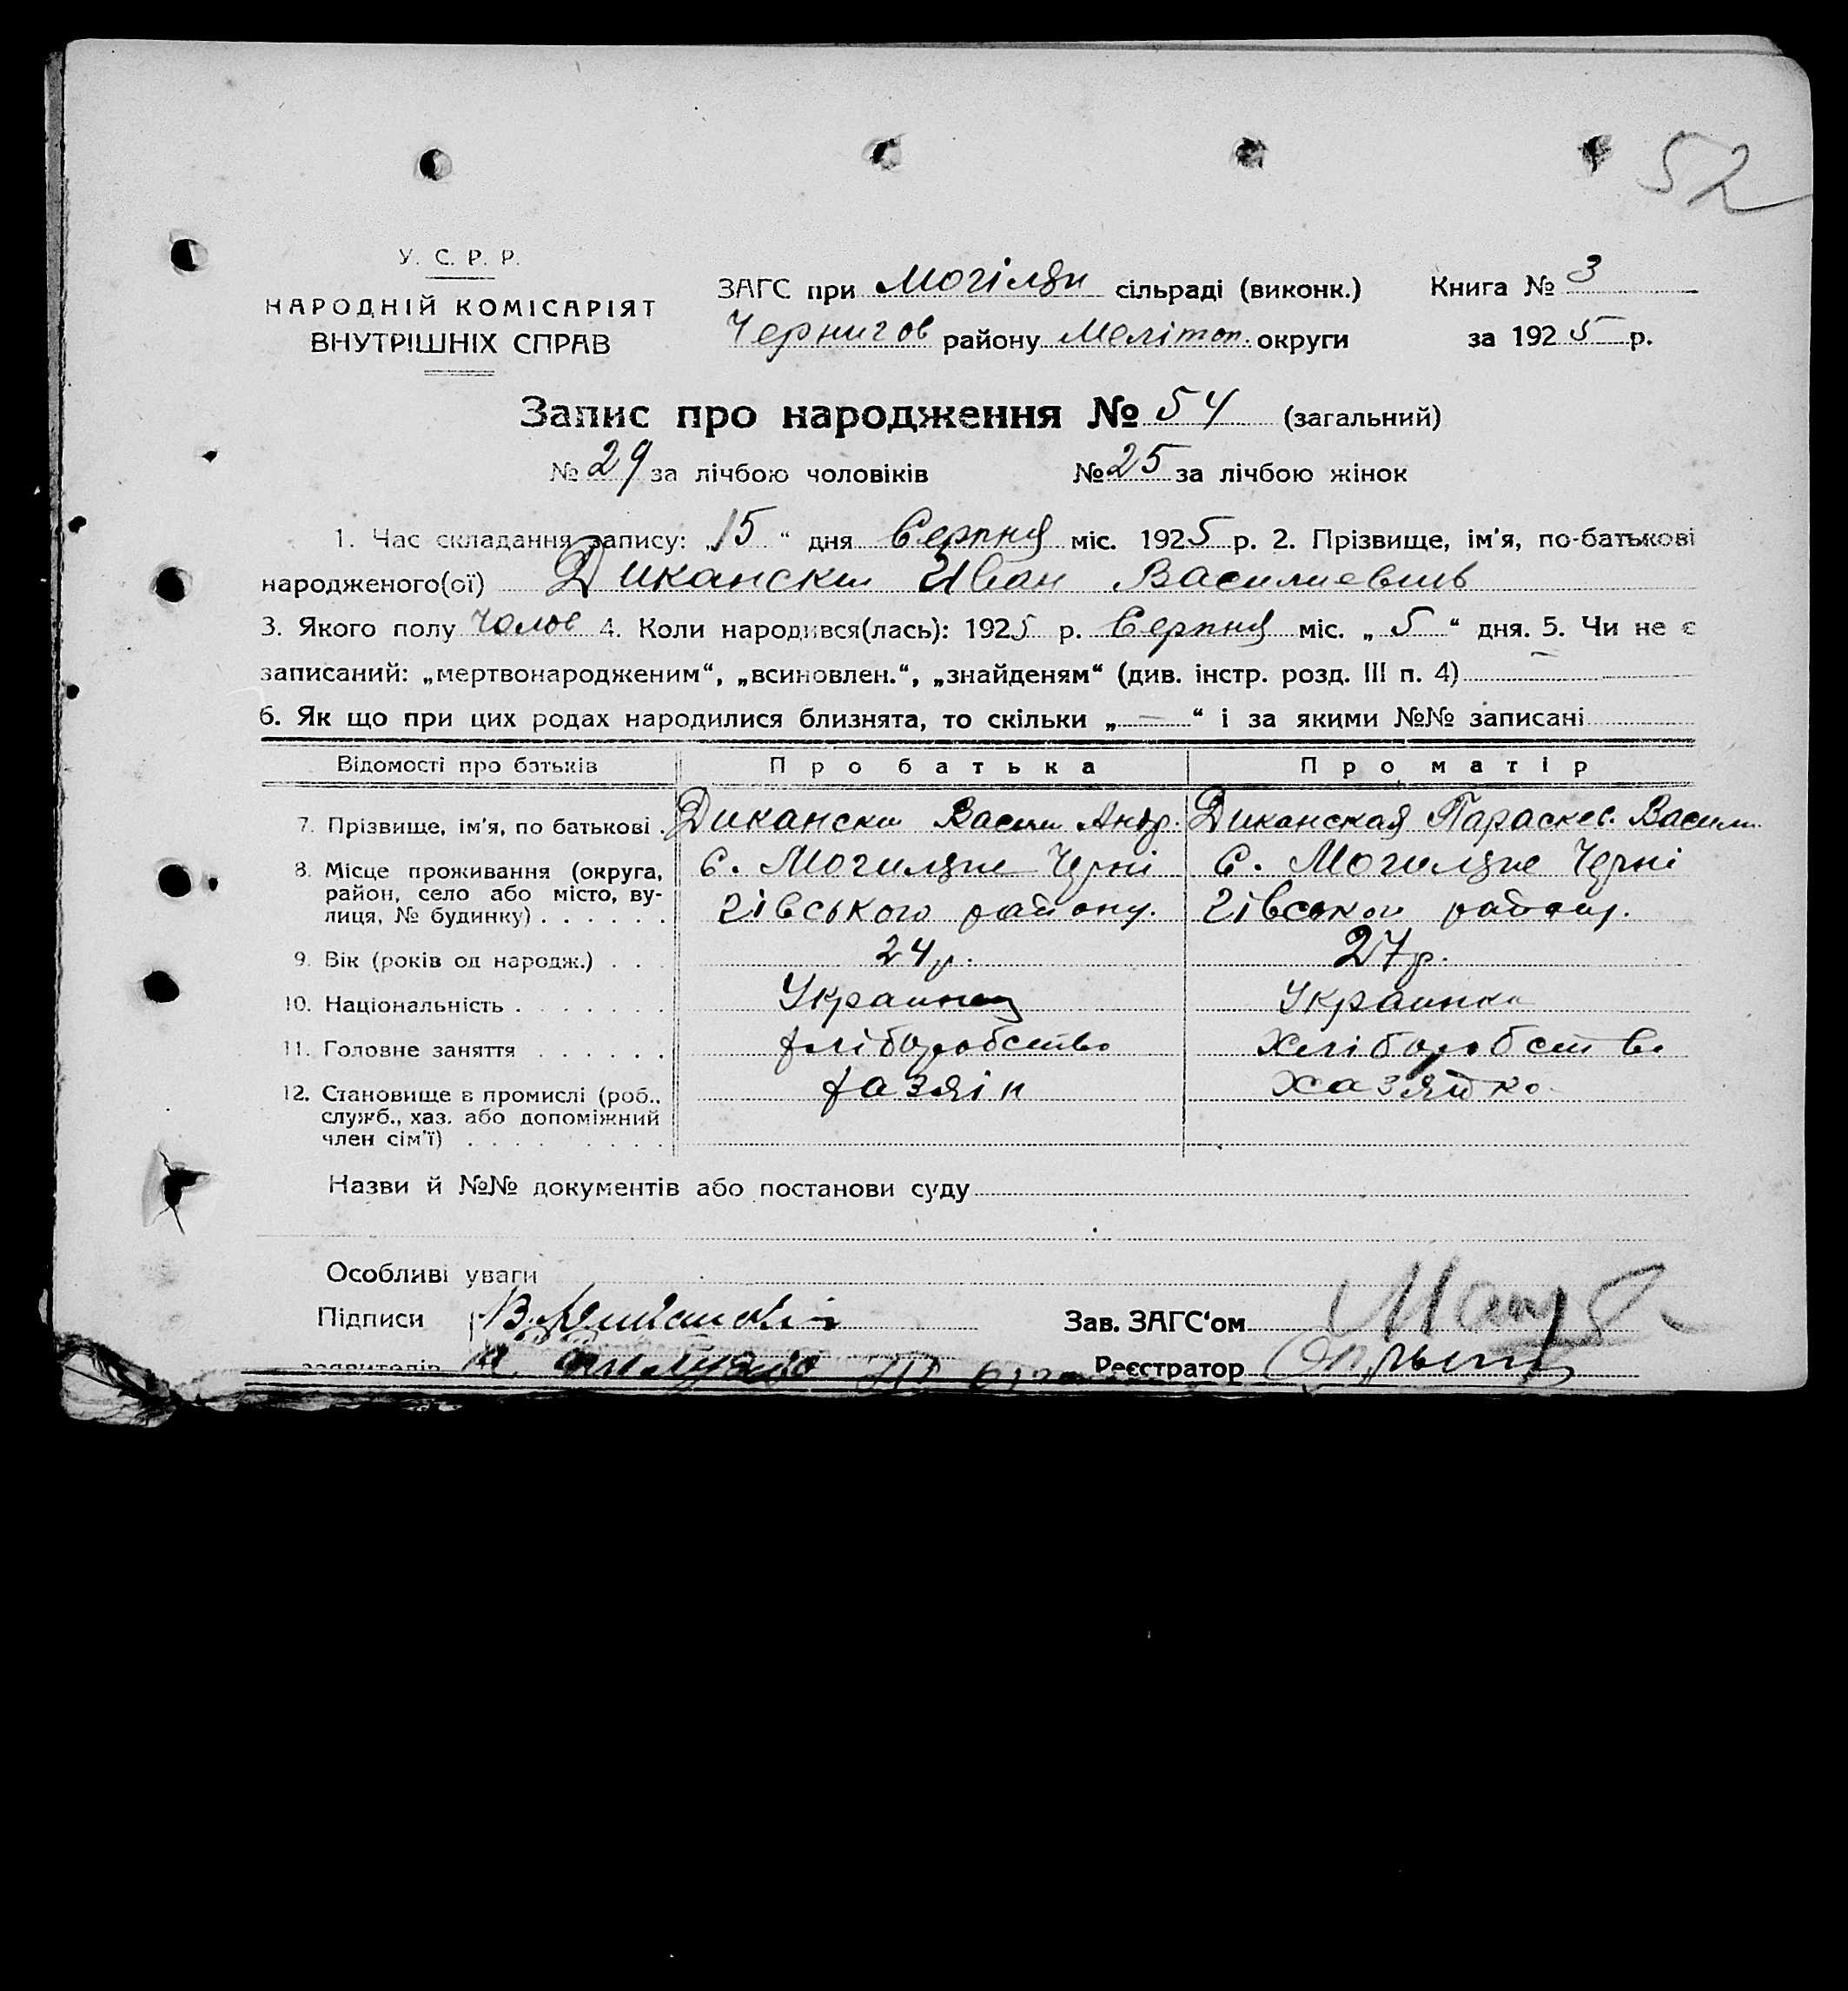 52
У. С. Р. Р.
НАРОДНІЙ КОМІСАРІЯТ
ВНУТРІШНІХ СПРАВ
ЗАГС при Могілян сільраді (виконк.) Книга № 3
Чернигов району Мелітоп. округи за 1925 р.
Запис про народження № 54 (загальний)
№ 29 за лічбою чоловіків № 25 за лічбою жінок
1. Час складання запису: „15“ дня Серпня міс. 1925 р. 2. Прізвище, ім'я, по-батькові
народженого(ої) Дикански Иван Василиевич
3. Якого полу Чолов 4. Коли народився(лась): 1925 р. Серпня міс. „5“ дня. 5. Чи не є
записаний: „мертвонародженим“, „всиновлен.“, „знайденям“ (див. інстр. розд. III п. 4) —
6. Як що при цих родах народилися близнята, то скільки „—“ і за якими №№ записані
Відомості про батьків Про батька Про матір
7. Прізвище, ім'я, по батькові . Дикански Васили Андр. Диканская Параскев. Васили
8. Місце проживання (округа, район, село або місто, вулиця, № будинку) . . . . . .
С. Могиляне Черні С. Могиляне Черні
гівського району. гівського району.
9. Вік (років од народж.) . . . 24 р. 27 р.
10. Національність . . . . . . . Украинец Украинка
11. Головне заняття . . . . . . хліборобство Хліборобство
12. Становище в промислі (роб., служб., хаз. або допоміжний член сім'ї) . . . . . . . . .
хазяін хазяйко
Назви й №№ документів або постанови суду
Особливі уваги
Підписи Зав. ЗАГС'ом
заявителів Реєстратор